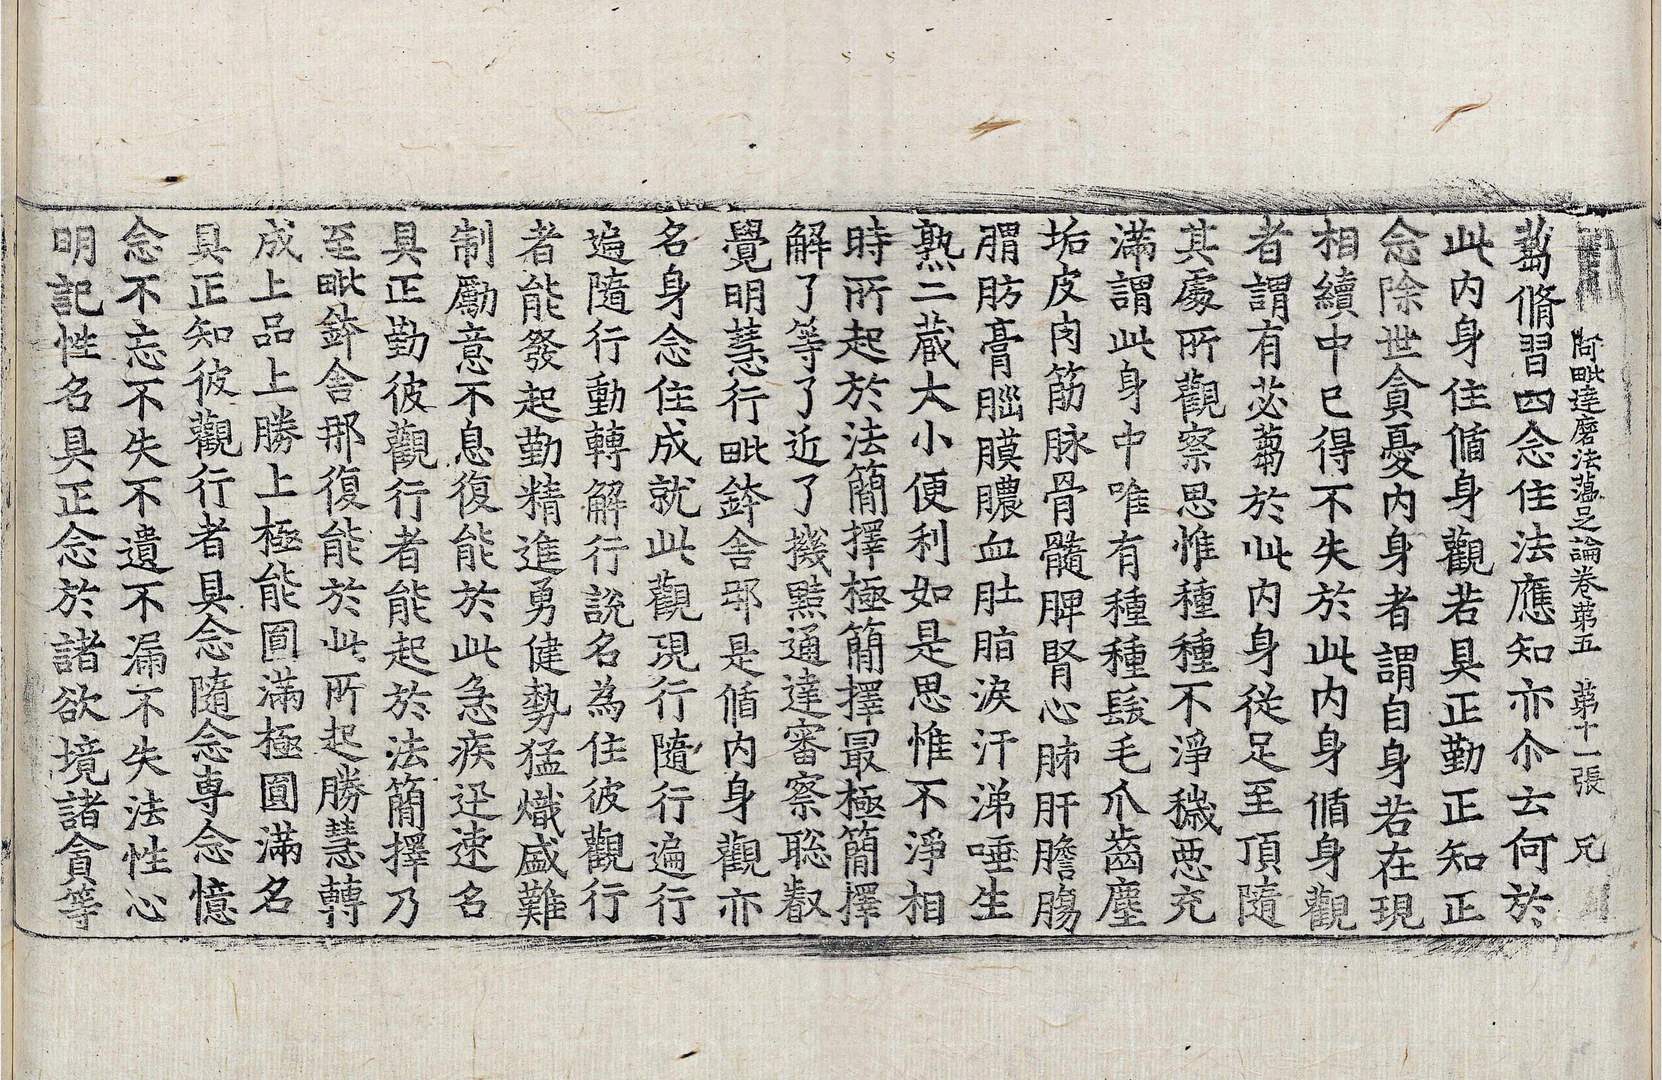 阿毗達磨法蘊足論卷苐五 苐十一張 兄
蒭脩習四念住法應知亦尒云何於
此内身住循身觀若具正勤正知正
念除世貪憂内身者謂自身若在現
相續中已得不失於此内身循身觀
者謂有苾蒭於此内身從足至頂隨
其處所觀察思惟種種不淨穢惡充
滿謂此身中唯有種種髮毛爪齒塵
垢皮肉筋脉骨髓脾腎心肺肝膽膓
胃肪膏腦膜膿血肚脂淚汗涕唾生
熟二蔵大小便利如是思惟不淨相
時所起於法簡擇極簡擇最極簡擇
解了等了近了機黠通達審察聡叡
覺明慧行毗鉢舍那是循内身觀亦
名身念住成就此觀現行隨行遍行
遍隨行動轉解行說名為住彼觀行
者能發起勤精進勇健勢猛熾盛難
制勵意不息復能於此急疾迅速名
具正勤彼觀行者能起於法簡擇乃
至毗鉢舍那復能於此所起勝慧轉
成上品上勝上極能圓滿極圓滿名
具正知彼觀行者具念隨念專念憶
念不忘不失不遺不漏不失法性心
明記性名具正念於諸欲境諸貪等